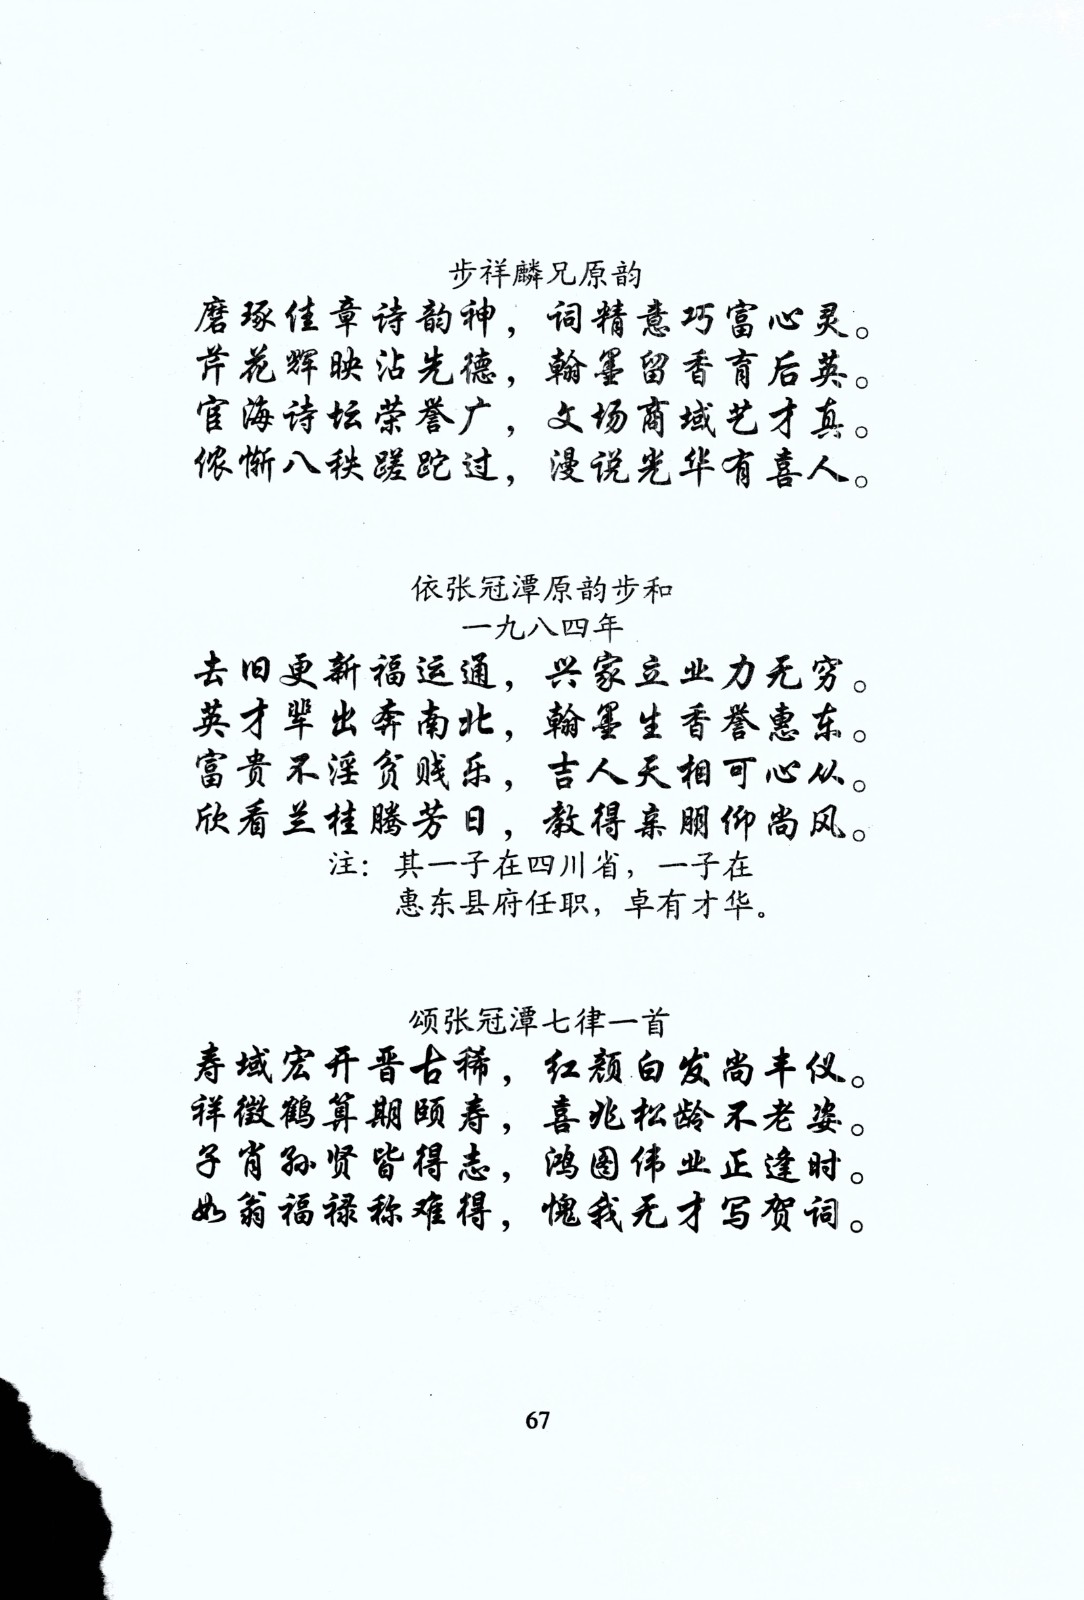 步祥麟兄原韵
磨琢佳章诗韵神，词精意巧富心灵。
芹花辉映沾先德，翰墨留香育后英。
官海诗坛荣誉广，文场商域艺才真。
侬惭八秩蹉跎过，漫说光华有喜人。
依张冠潭原韵步和
一九八四年
去旧更新福运通，兴家立业力无穷。
英才辈出奔南北，翰墨生香誉惠东。
富贵不淫贫贱乐，吉人天相可心从。
欣看兰桂腾芳日，教得亲朋仰尚风。
注：其一子在四川省，一子在
惠东县府任职，卓有才华。
颂张冠潭七律一首
寿域宏开晋古稀，红颜白发尚丰仪。
祥徵鹤算期颐寿，喜兆松龄不老姿。
子肖孙贤皆得志，鸿图伟业正逢时。
如翁福禄称难得，愧我无才写贺词。
67